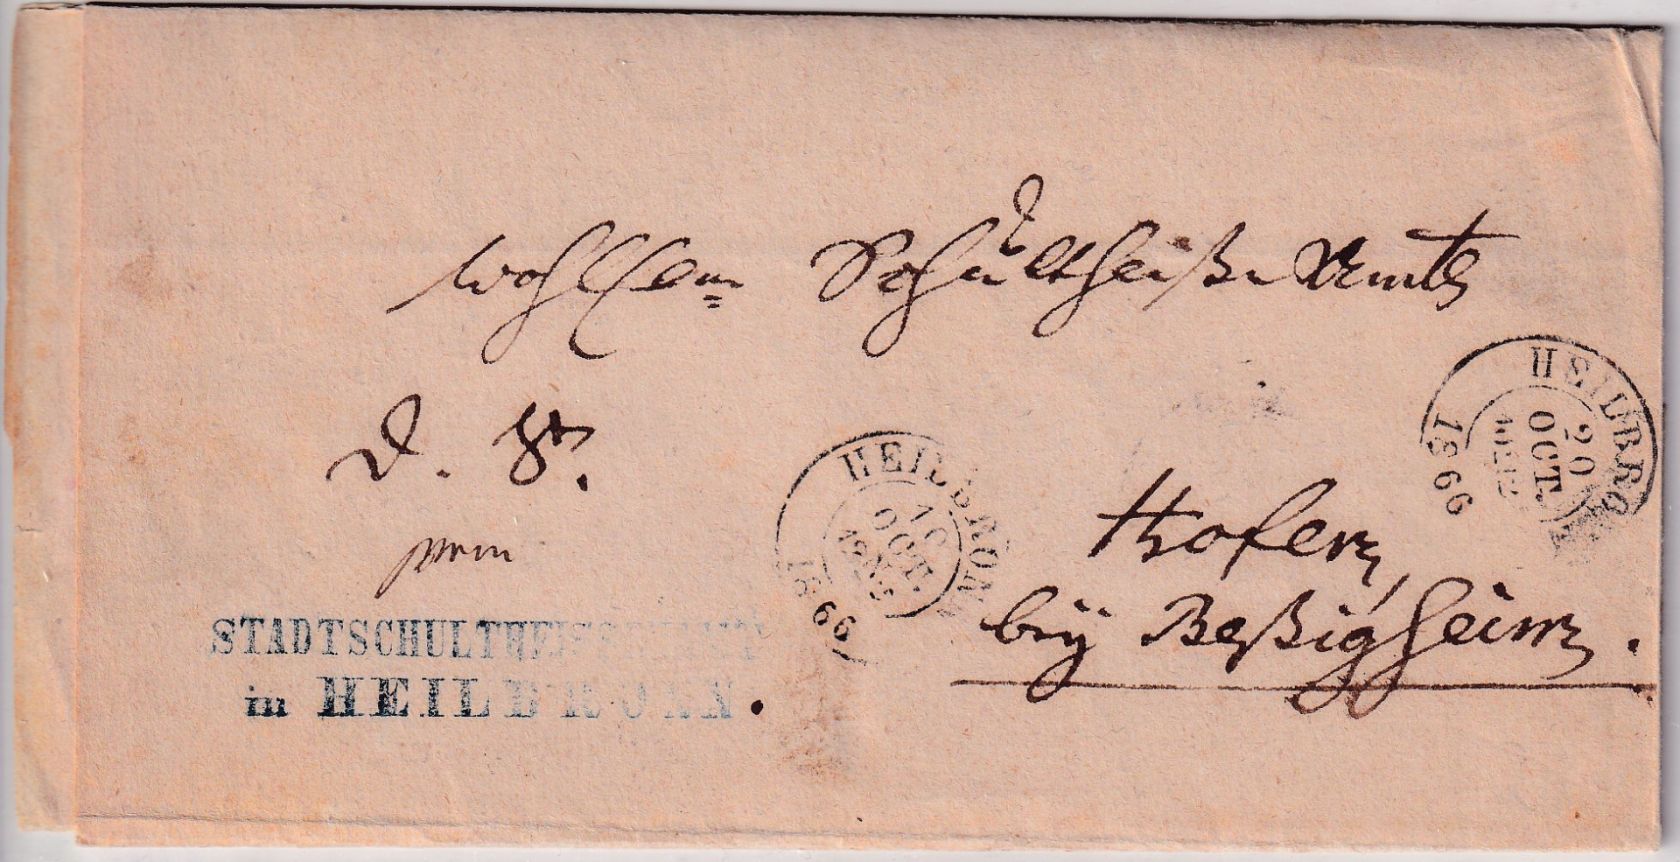 Wohllöbl. Schultheißen Amte
D. S.
Hofen,
bey Beßigheim.
STADTSCHULTHEISSENAMT
in HEILBRONN.
HEILBRONN
OCT.
1866
HEILBRONN
20
OCT.
1866